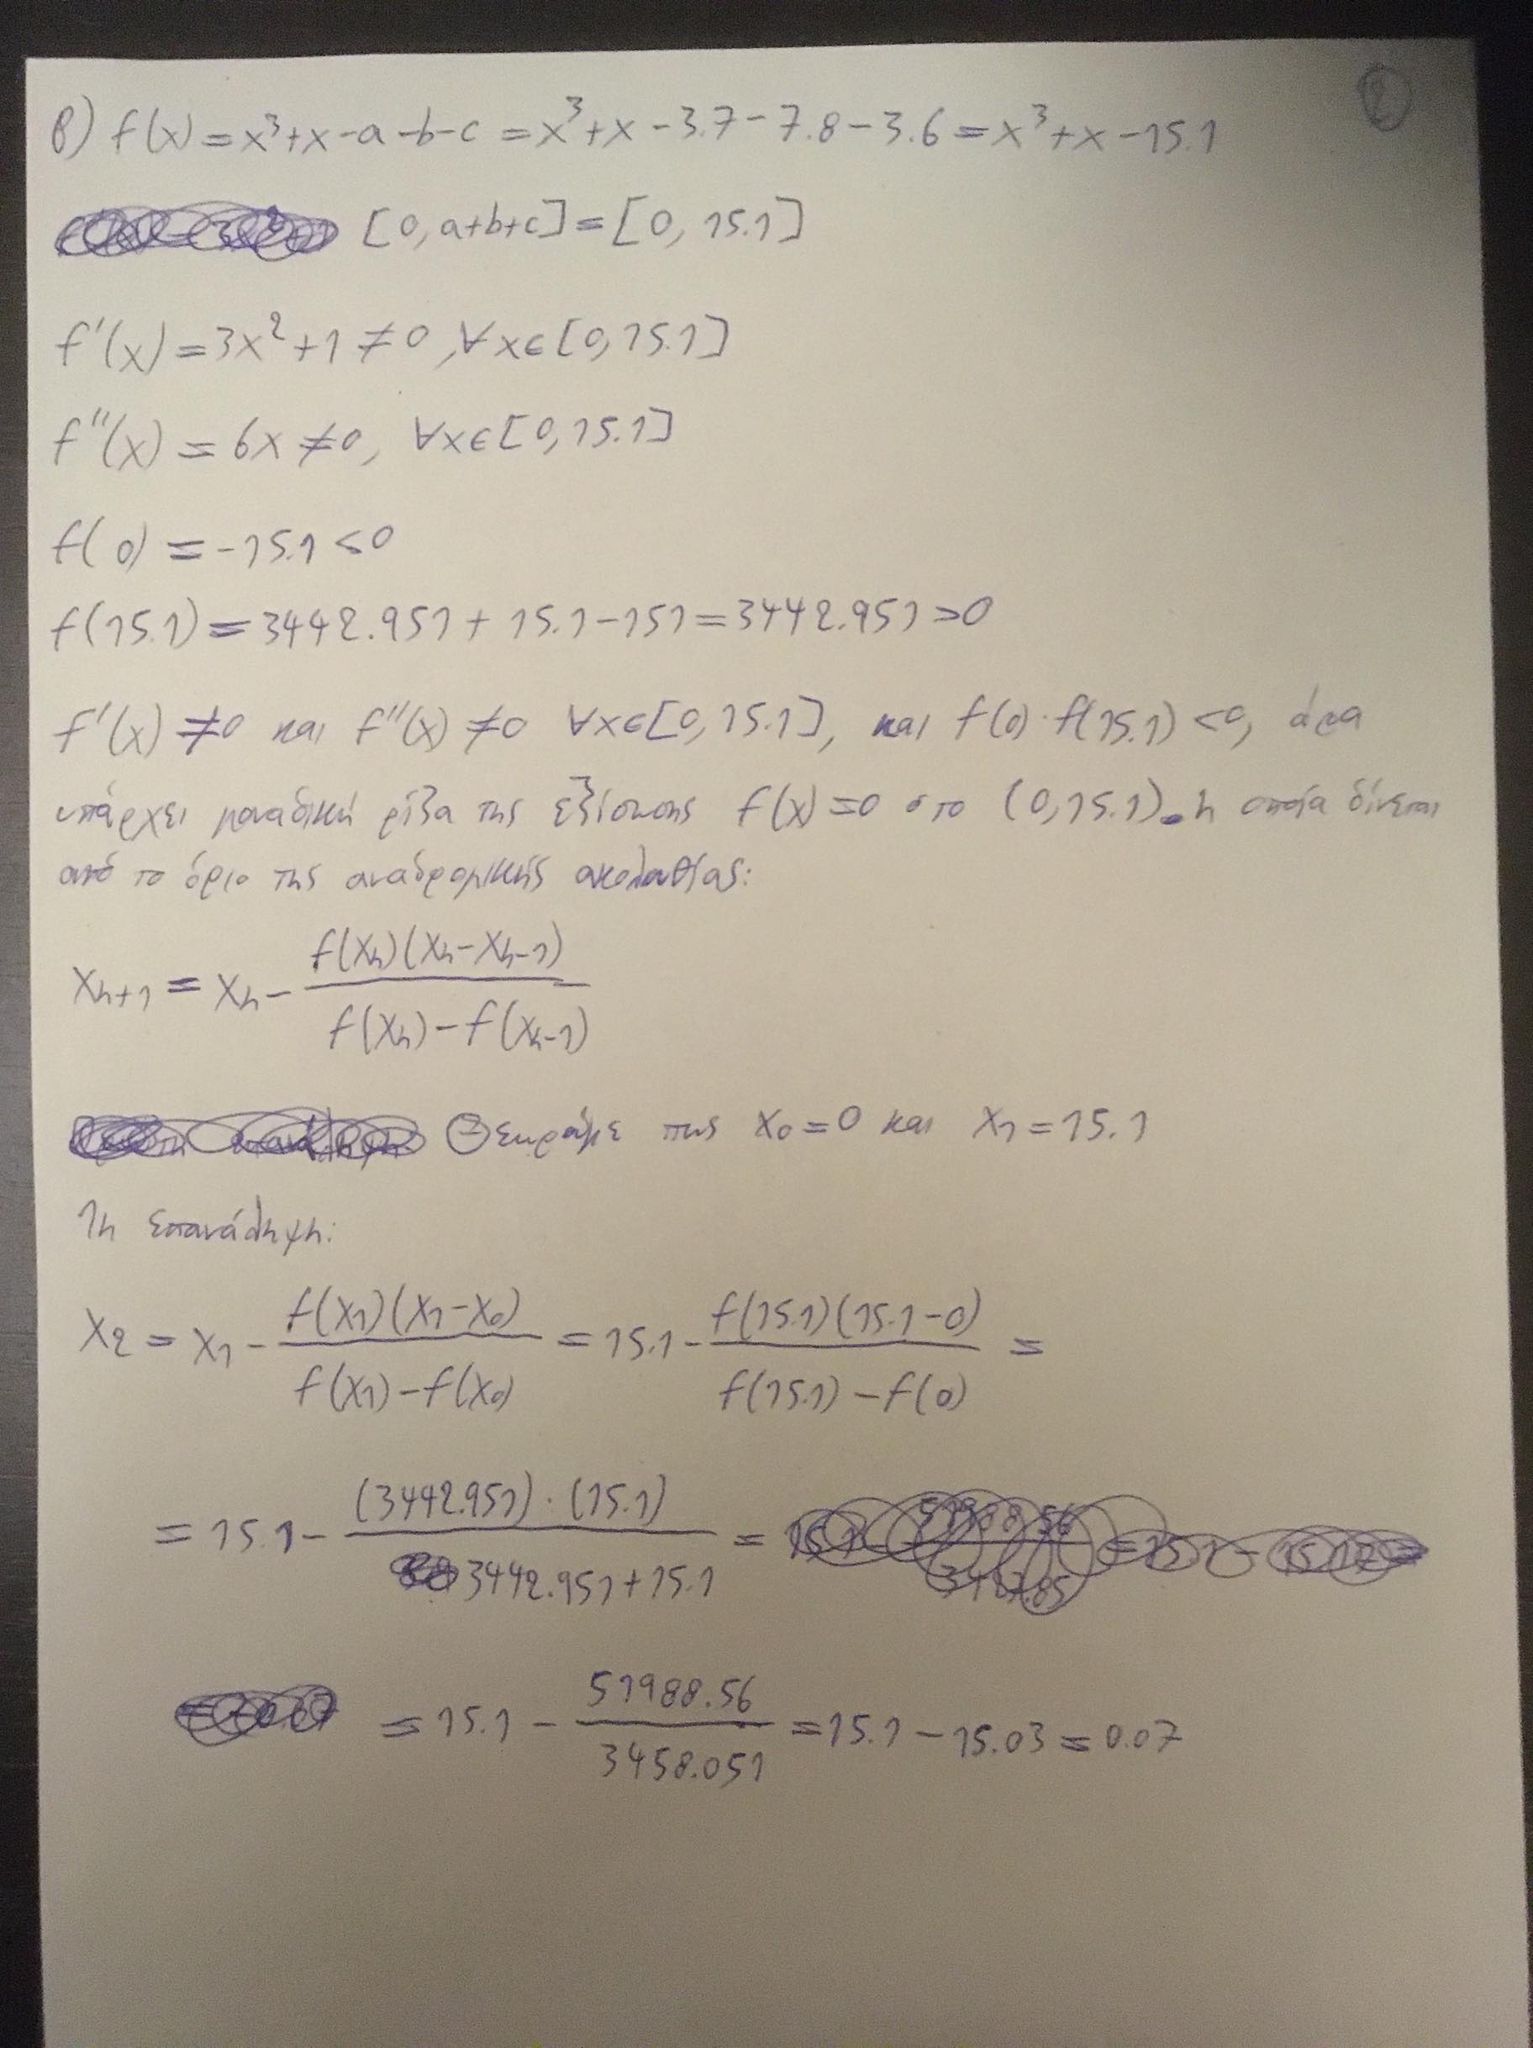 ②
β) f(x)=x³+x-a-b-c=x³+x-3.7-7.8-3.6=x³+x-15.1
[0,a+b+c]=[0,15.1]
f'(x)=3x²+1≠0,∀x∈[0,15.1]
f''(x)=6x≠0, ∀x∈[0,15.1]
f(0)=-15.1<0
f(15.1)=3442.951+15.1-151=3442.951>0
f'(x)≠0 και f''(x)≠0 ∀x∈[0,15.1], και f(0)·f(15.1)<0, άρα
υπάρχει μοναδική ρίζα της εξίσωσης f(x)=0 στο (0,15.1). η οποία δίνεται
από το όριο της αναδρομικής ακολουθίας:
x_{n+1} = x_n - f(x_n)(x_n-x_{n-1}) / f(x_n)-f(x_{n-1})
Θεωράμε πως x₀=0 και x₁=15.1
1η επανάληψη:
x₂ = x₁ - f(x₁)(x₁-x₀) / f(x₁)-f(x₀) = 15.1 - f(15.1)(15.1-0) / f(15.1)-f(0) =
= 15.1 - (3442.951)·(15.1) / 3442.951+15.1 =
= 15.1 - 51988.56 / 3458.051 = 15.1-15.03=0.07